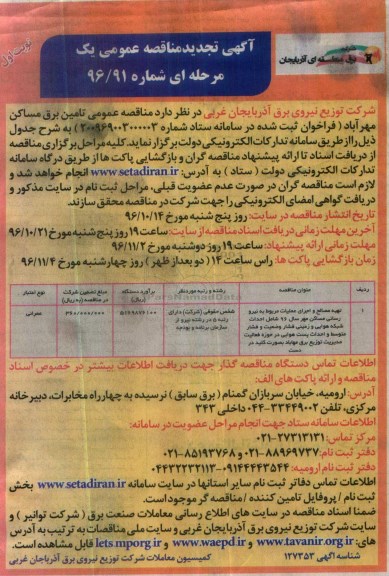 شرکت
برق منطقه ای آذربایجان
آگهی تجدیدمناقصه عمومی یک
مرحله ای شماره ۹۶/۹۱
نوبت اول
شرکت توزیع نیروی برق آذربایجان غربی در نظر دارد مناقصه عمومی تامین برق مساکن
مهرآباد ( فراخوان ثبت شده در سامانه ستاد شماره ) به شرح جدول
ذیل را از طریق سامانه تدارکات الکترونیکی دولت برگزار نماید. کلیه مراحل برگزاری مناقصه
از دریافت اسناد تا ارائه پیشنهاد مناقصه گران و بازگشایی پاکت ها از طریق درگاه سامانه
تدارکات الکترونیکی دولت ( ستاد ) به آدرس: www.setadiran.ir انجام خواهد شد و
لازم است مناقصه گران در صورت عدم عضویت قبلی، مراحل ثبت نام در سایت مذکور و
دریافت گواهی امضای الکترونیکی را جهت شرکت در مناقصه محقق سازند.
تاریخ انتشار مناقصه در سایت: روز پنج شنبه مورخ ۹۶/۱۰/۱۴
آخرین مهلت زمانی دریافت اسناد مناقصه از سایت: ساعت ۱۹ روز پنج شنبه مورخ ۹۶/۱۰/۲۱
مهلت زمانی ارائه پیشنهاد: ساعت ۱۹ روز دوشنبه مورخ ۹۶/۱۱/۲
زمان بازگشایی پاکت ها: راس ساعت ۱۴ ( دو بعداز ظهر ) روز چهارشنبه مورخ ۹۶/۱۱/۴
ردیف
عنوان مناقصه
رشته و رتبه موردنظر
برآورد دستگاه (ریال)
مبلغ تضمین شرکت در مناقصه (به ریال)
نوع اعتبار
۱
تهیه مصالح و اجرای عملیات مربوط به نیرو
رسانی مساکن مهر سال ۹۶ شامل احداث
شبکه هوایی و زمینی فشار ضعیف و فشار
متوسط و احداث پست هوایی در حوزه فعالیت
مدیریت توزیع برق مهاباد بصورت کلید در
دست
شخص حقوقی (شرکت) دارای
رتبه ۵ در رشته نیرو از
سازمان برنامه و بودجه
عمرانی
اطلاعات تماس دستگاه مناقصه گذار جهت دریافت اطلاعات بیشتر در خصوص اسناد
مناقصه و ارائه پاکت های الف:
آدرس: ارومیه، خیابان سربازان گمنام ( برق سابق ) نرسیده به چهارراه مخابرات، دبیرخانه
مرکزی، تلفن ۳۳۴۴۹۰۰۲-۰۴۴ داخلی ۳۴۳
اطلاعات سامانه ستاد جهت انجام مراحل عضویت در سامانه:
مرکز تماس: ۲۷۳۱۳۱۳۱-۰۲۱
دفتر ثبت نام: ۸۸۹۶۹۷۳۷-۰۲۱ و ۸۵۱۹۳۷۶۸-۰۲۱
دفتر ثبت نام ارومیه: ۰۹۱۴۴۴۴۳۵۴۴-۰۴۴۳۲۲۳۲۱۱۳
اطلاعات تماس دفاتر ثبت نام سایر استانها در سایت سامانه www.setadiran.ir بخش
ثبت نام / پروفایل تامین کننده / مناقصه گر موجود است.
ضمنا اسناد مناقصه در سایت های اطلاع رسانی معاملات صنعت برق ( شرکت توانیر ) و
سایت شرکت توزیع نیروی برق آذربایجان غربی و سایت ملی مناقصات به ترتیب به آدرس
های: www.tavanir.org.ir و www.waepd.ir و iets.mporg.ir قابل مشاهده است.
شناسه آگهی ۱۲۷۳۵۳
کمیسیون معاملات شرکت توزیع نیروی برق آذربایجان غربی